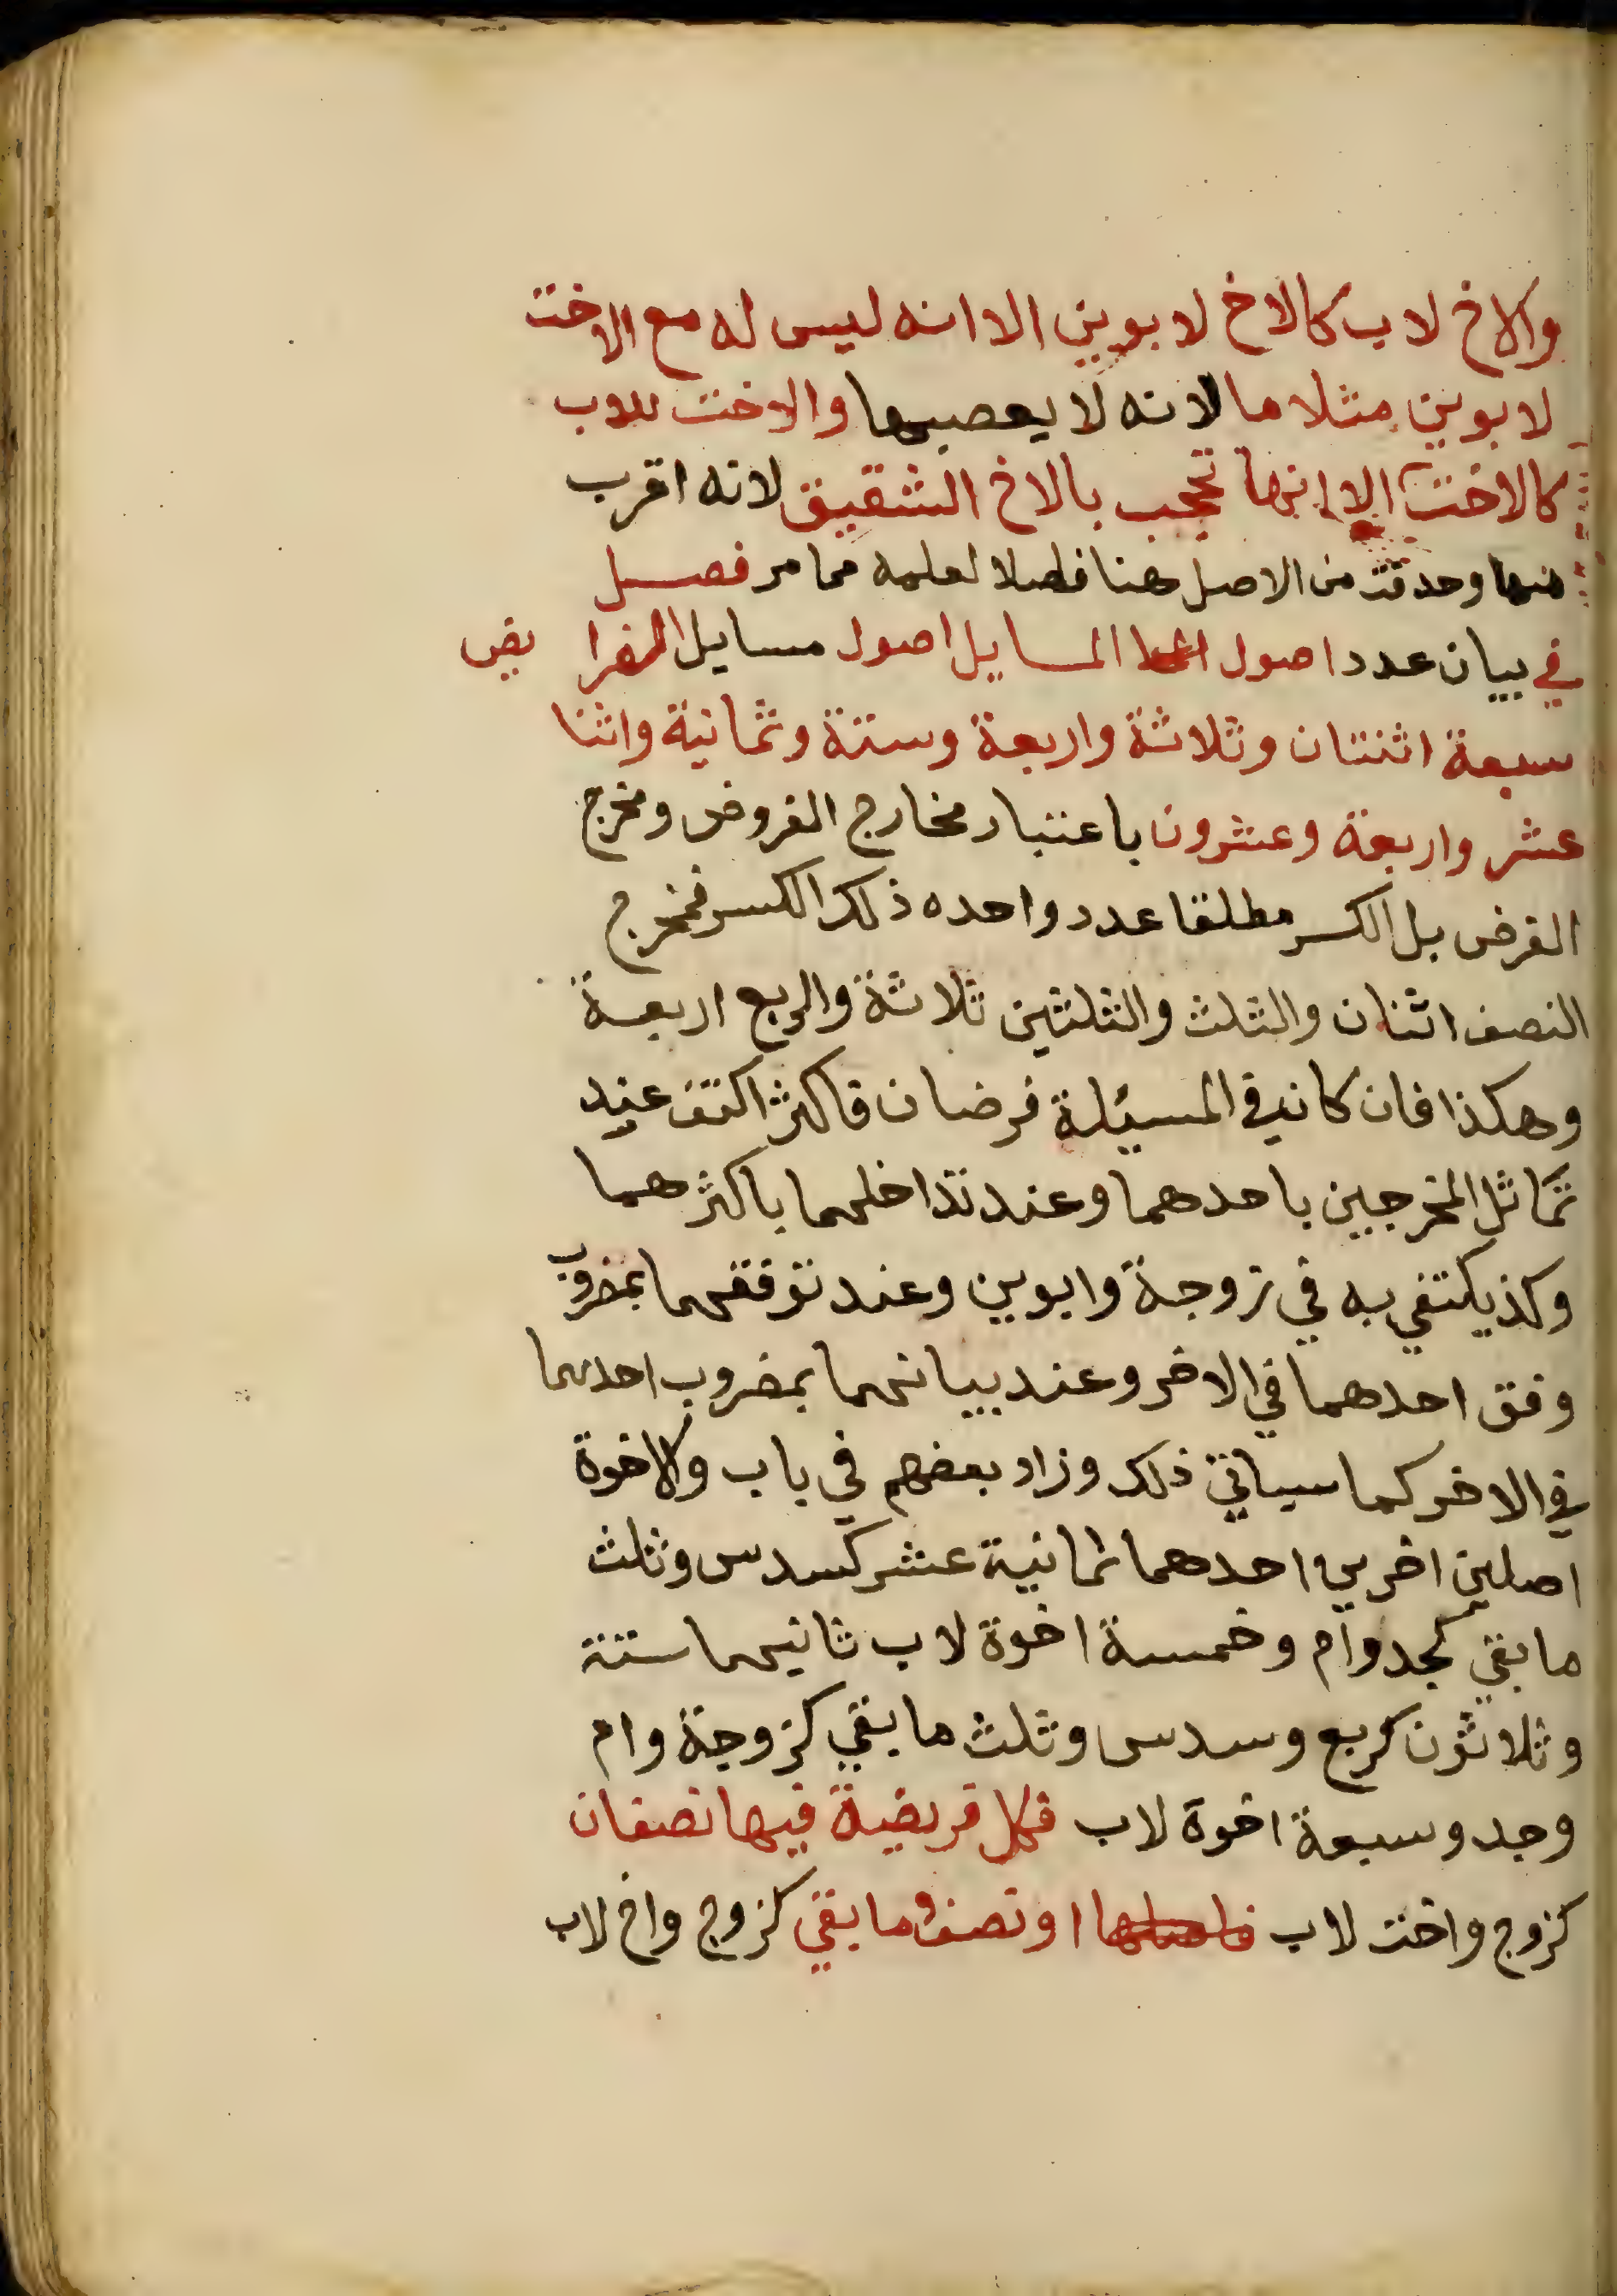 والاخ لاب كالاخ لابوين الا انه ليس له مع الاخت
لابوين مثلا ما لانه لا يعصبها والاخت للاب
كالاخت الا انها تحجب بالاخ الشقيق لانه اقرب
منها وحدفت من الاصل هنا فاصلا لعلمه مما مر فصل
في بيان عدد اصول المسايل اصول مسايل الفرا يض
سبعة اثنتان وثلاثة واربعة وستة وثمانية واثنا
عشر واربعة وعشرون باعتبار مخارج الفروض ومخرج
الفرض بل الكسر مطلقا عدد واحده ذلك الكسر فمخرج
النصف اثنان والثلث والثلثين ثلاثة والربع اربعة
وهكذا فان كان في المسيئلة فرضان فاكثر اكتف عند
تماثل المخرجين باحدهما وعند تداخلهما باكثرهما
وكذ يكتفي به في زوجة وابوين وعند توفقهما بمضروب
وفق احدهما في الاخر وعند بيانهما بمضروب احدهما
في الاخر كما سياتي ذلك وزاد بعضهم في باب والاخوة
اصلين اخرين احدهما ثمانية عشر كسدس وثلث
ما بقي كجد وام وخمسة اخوة لاب ثانيهما ستة
وثلاثون كربع وسدس وثلث ما بقي كزوجة وام
وجد وسبعة اخوة لاب فكل فريضة فيها نصفان
كزوج واخت لاب فاصلها او نصف وما بقي كزوج واخ لاب